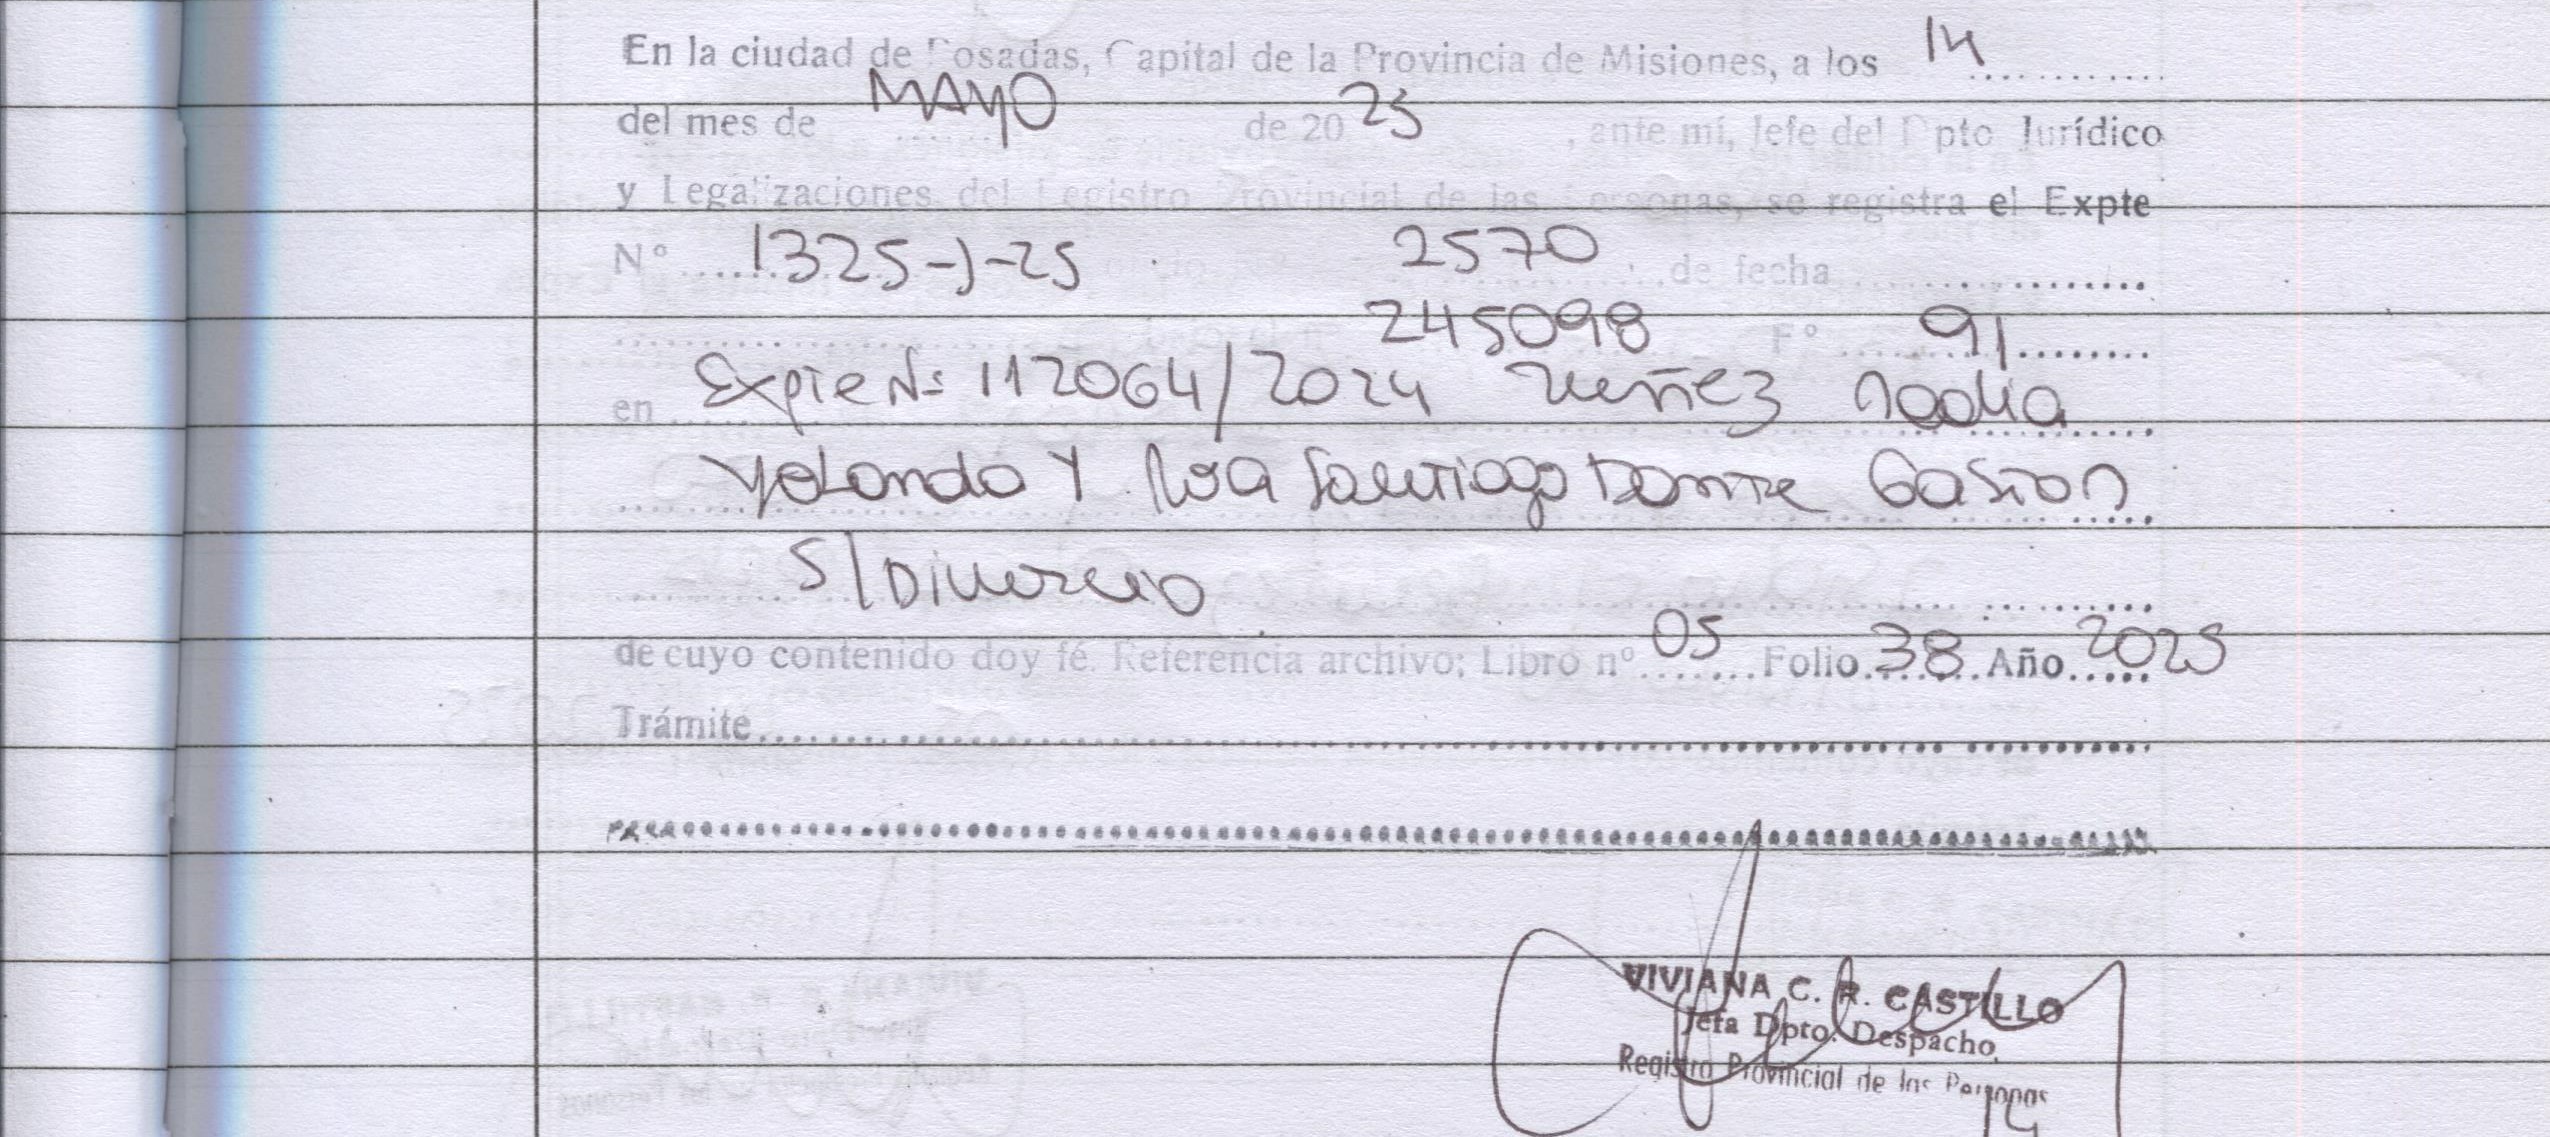 En la ciudad de Posadas, Capital de la Provincia de Misiones, a los 14
del mes de MAYO de 2025, ante mí, Jefe del Dpto Jurídico
y Legalizaciones del Registro Provincial de las Personas, se registra el Expte
Nº 1325-J-25 2570 de fecha
245098 Fº 91
en Expte Nº 112064/2024 Nuñez Nadia
Yolanda Y Roa Santiago Dante Gaston
S/Divorcio
de cuyo contenido doy fé. Referencia archivo; Libro nº 05 Folio 38 Año 2025
Trámite
VIVIANA C. R. CASTILLO
Jefa Dpto. Despacho
Registro Provincial de las Personas